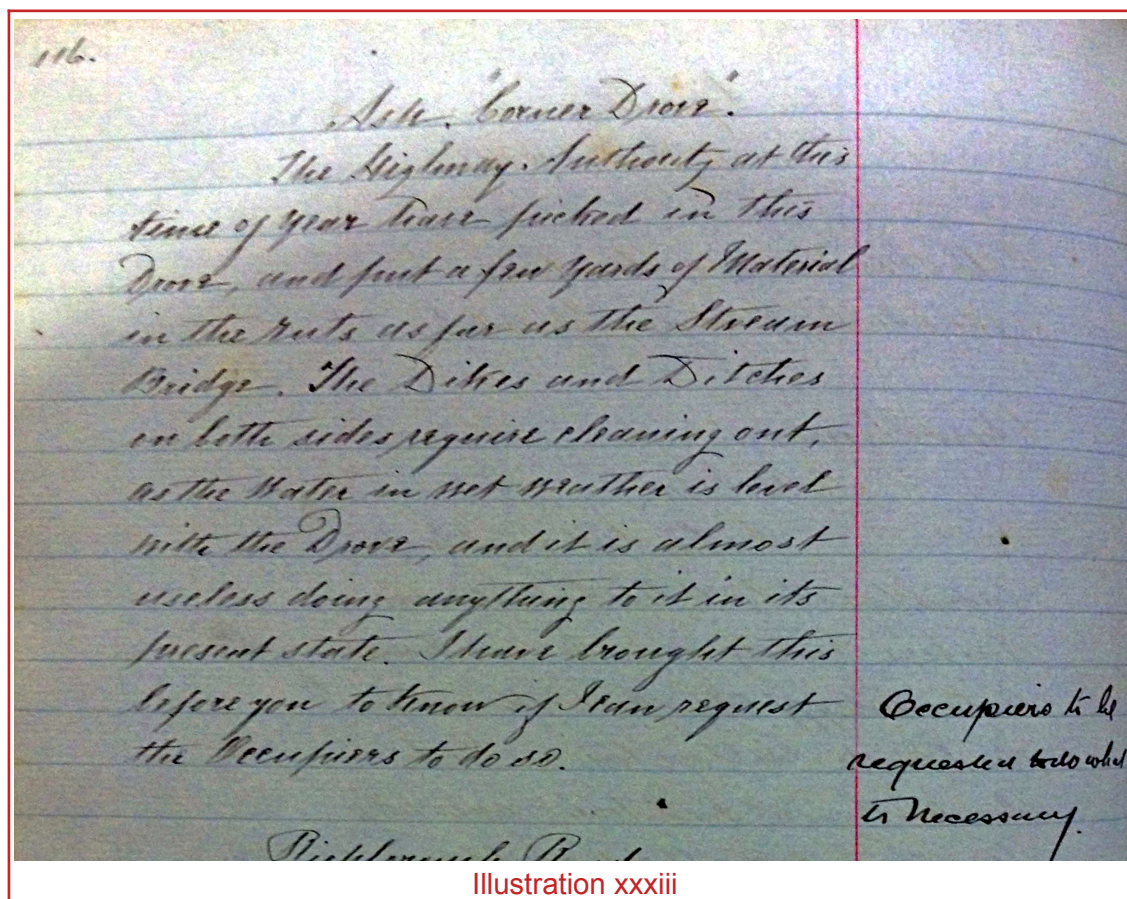 116.
Ash. "Corner Drove".
The Highway Authority at this
time of year have picked in this
Drove, and put a few yards of Material
in the ruts as far as the Stream
Bridge. The Dikes and Ditches
on both sides require cleaning out,
as the Water in wet weather is level
with the Drove, and it is almost
useless doing anything to it in its
present state. I have brought this
before you to know if I can request
the Occupiers to do so.
Occupiers to be
requested to do what
is necessary.
Richborough Road
Illustration xxxiii